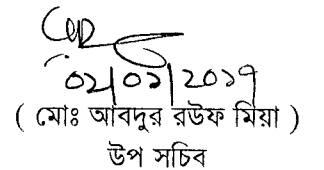 ০২|০১|২০১৭
( মোঃ আবদুর রউফ মিয়া )
উপ সচিব